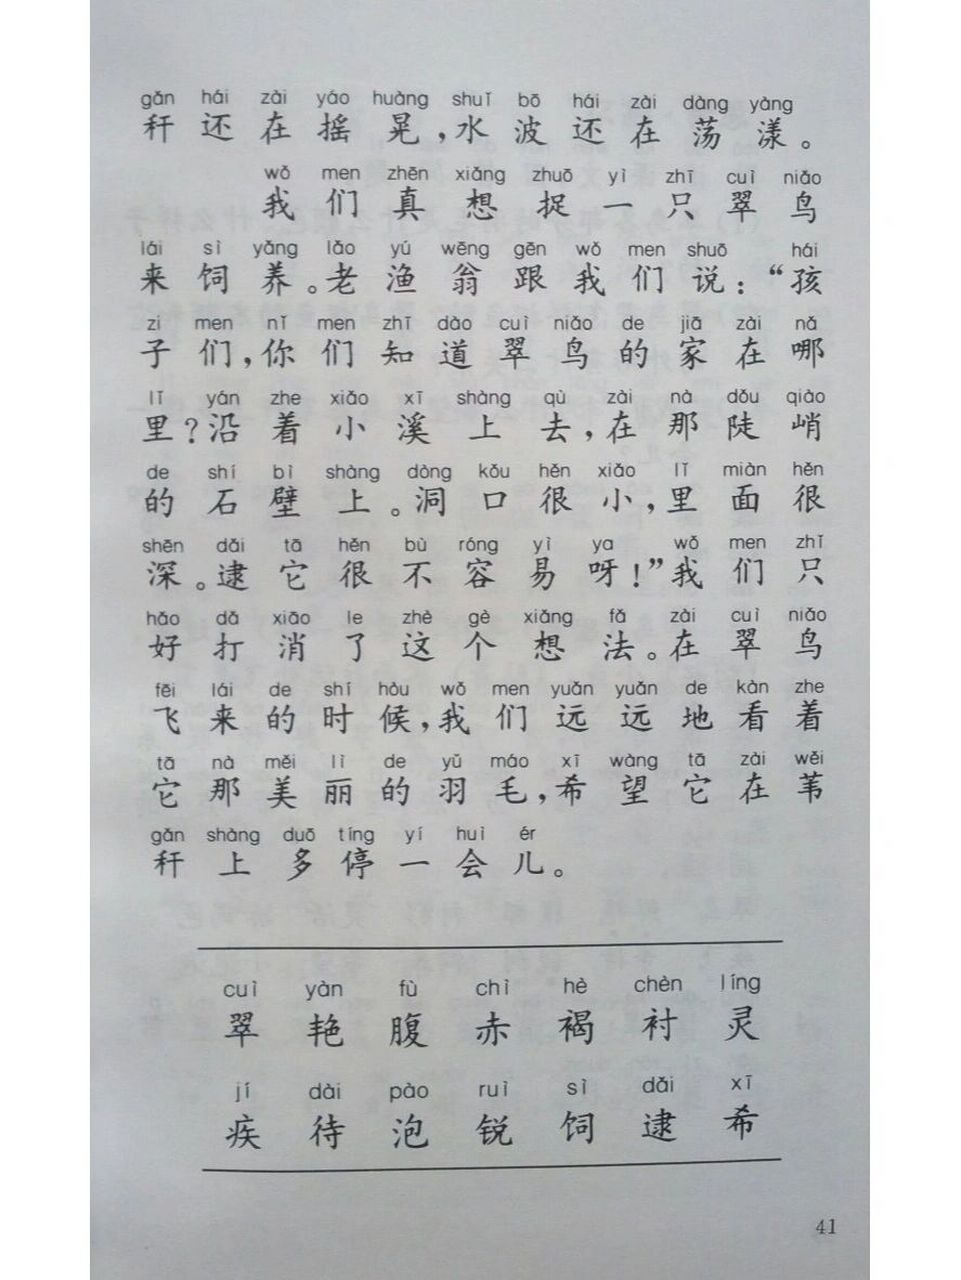 gǎn hái zài yáo huàng shuǐ bō hái zài dàng yàng
秆还在摇晃，水波还在荡漾。
wǒ men zhēn xiǎng zhuō yì zhī cuì niǎo
我们真想捉一只翠鸟
lái sì yǎng lǎo yú wēng gēn wǒ men shuō hái
来饲养。老渔翁跟我们说：“孩
zi men nǐ men zhī dào cuì niǎo de jiā zài nǎ
子们，你们知道翠鸟的家在哪
lǐ yán zhe xiǎo xī shàng qù zài nà dǒu qiào
里？沿着小溪上去，在那陡峭
de shí bì shàng dòng kǒu hěn xiǎo lǐ miàn hěn
的石壁上。洞口很小，里面很
shēn dǎi tā hěn bù róng yì ya wǒ men zhǐ
深。逮它很不容易呀！”我们只
hǎo dǎ xiāo le zhè gè xiǎng fǎ zài cuì niǎo
好打消了这个想法。在翠鸟
fēi lái de shí hòu wǒ men yuǎn yuǎn de kàn zhe
飞来的时候，我们远远地看着
tā nà měi lì de yǔ máo xī wàng tā zài wěi
它那美丽的羽毛，希望它在苇
gǎn shàng duō tíng yí huì ér
秆上多停一会儿。
cuì yàn fù chì hè chèn líng
翠 艳 腹 赤 褐 衬 灵
jí dài pào ruì sì dǎi xī
疾 待 泡 锐 饲 逮 希
41